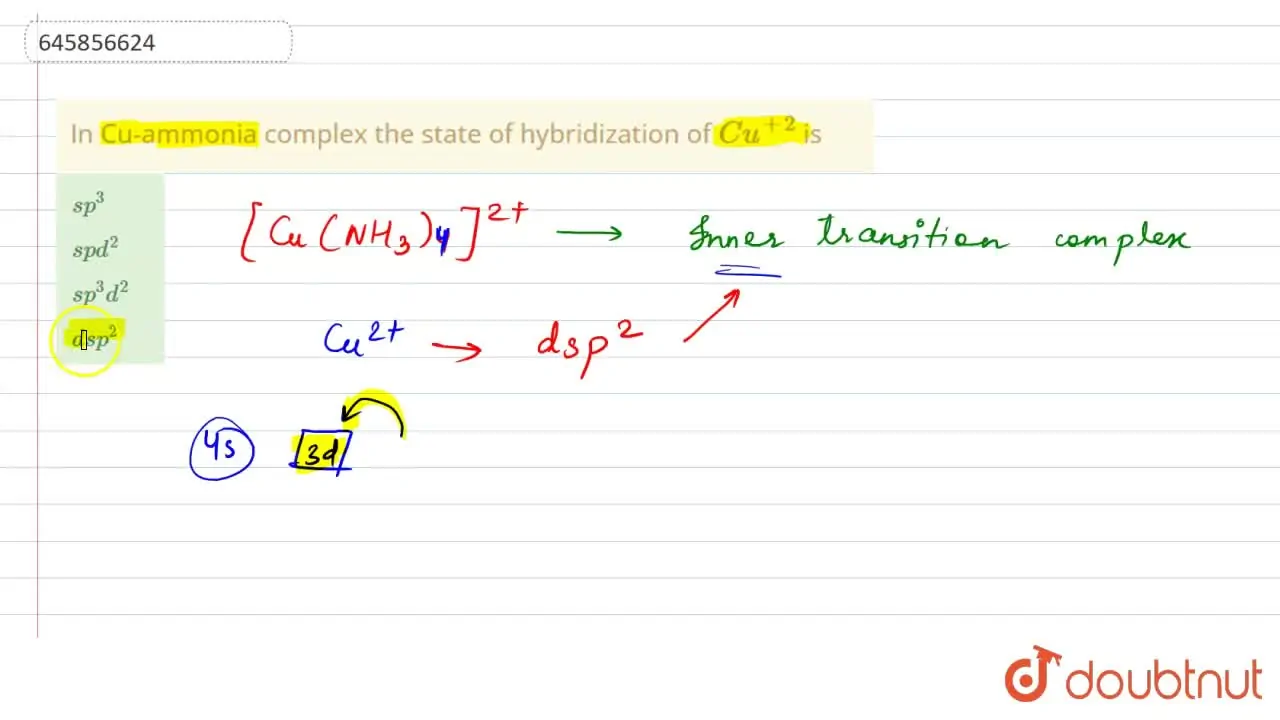 645856624
In Cu-ammonia complex the state of hybridization of $Cu^{+2}$ is
$sp^3$
$spd^2$
$sp^3d^2$
$dsp^2$
$[Cu(NH_3)_4]^{2+}$ → Inner transition complex
$Cu^{2+}$ → $dsp^2$
4s 3d
doubtnut